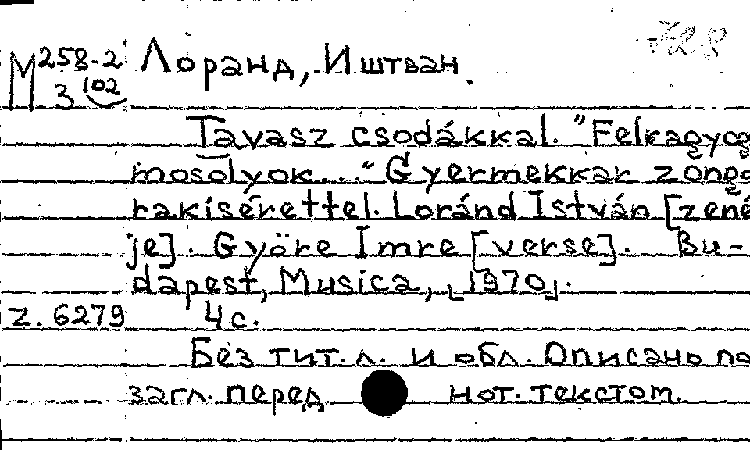 М 258-2 Лоранд, Иштван.
3 102
Tavasz csodákkal. "Felragyog
mosolyok..." Gyermekkar zong
rakisérettel. Loránd István [zené
je]. Györe Imre [verse]. Bu-
dapest, Musica, [1970].
Z. 6279 4 с.
Без тит. л. и обл. Описано по
загл. перед нот. текстом.